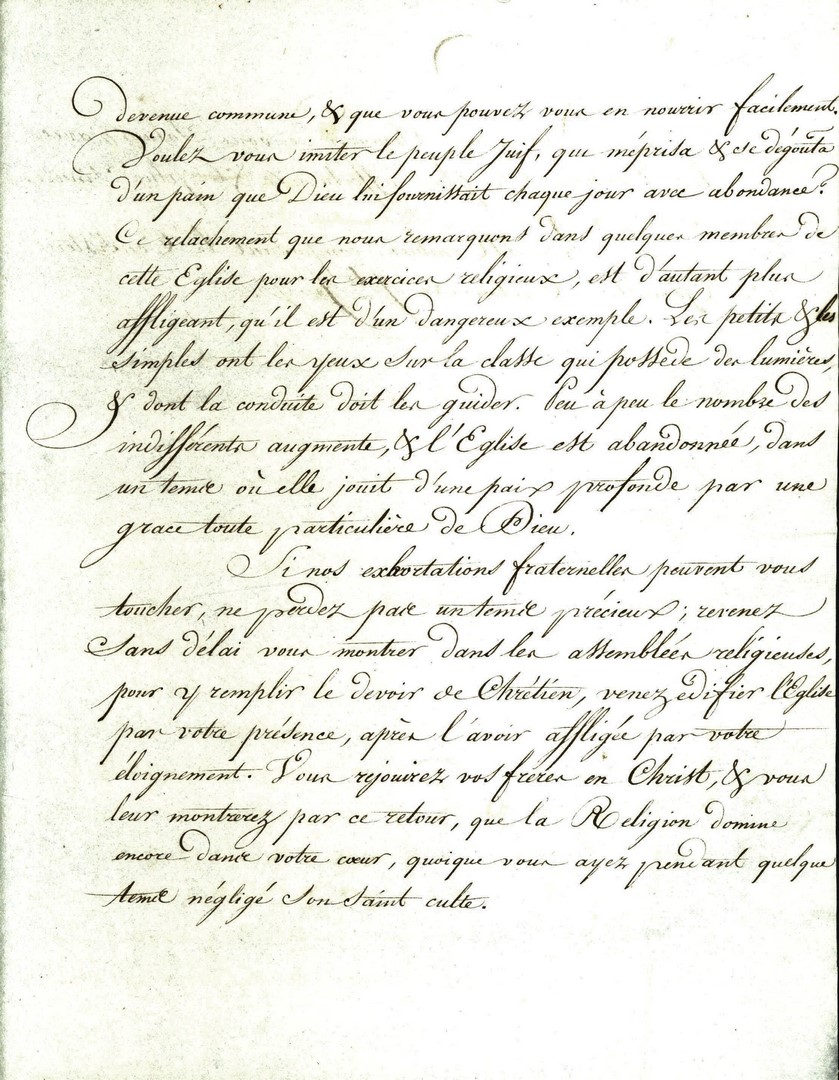 devenue commune, & que vous pouvez vous en nourrir facilement.
Voulez vous imiter le peuple Juif, qui méprisa & se dégouta
d'un pain que Dieu lui fournissait chaque jour avec abondance?
Ce relachement que nous remarquons dans quelques membres de
cette Eglise pour les exercices religieux, est d'autant plus
affligeant, qu'il est d'un dangereux exemple. Les petits & les
simples ont les yeux sur la classe qui possède des lumières,
& dont la conduite doit les guider. Peu à peu le nombre des
indifférents augmente, & l'Eglise est abandonnée, dans
un tems où elle jouit d'une paix profonde par une
grace toute particulière de Dieu.
Si nos exhortations fraternelles peuvent vous
toucher, ne perdez pas un tems précieux; revenez
sans délai vous montrer dans les assemblées religieuses,
pour y remplir le devoir de Chrétien, venez édifier l'Eglise
par votre présence, après l'avoir affligée par votre
éloignement. Vous rejouirez vos frères en Christ, & vous
leur montrerez par ce retour, que la Religion domine
encore dans votre cœur, quoique vous ayez pendant quelque
tems négligé son saint culte.